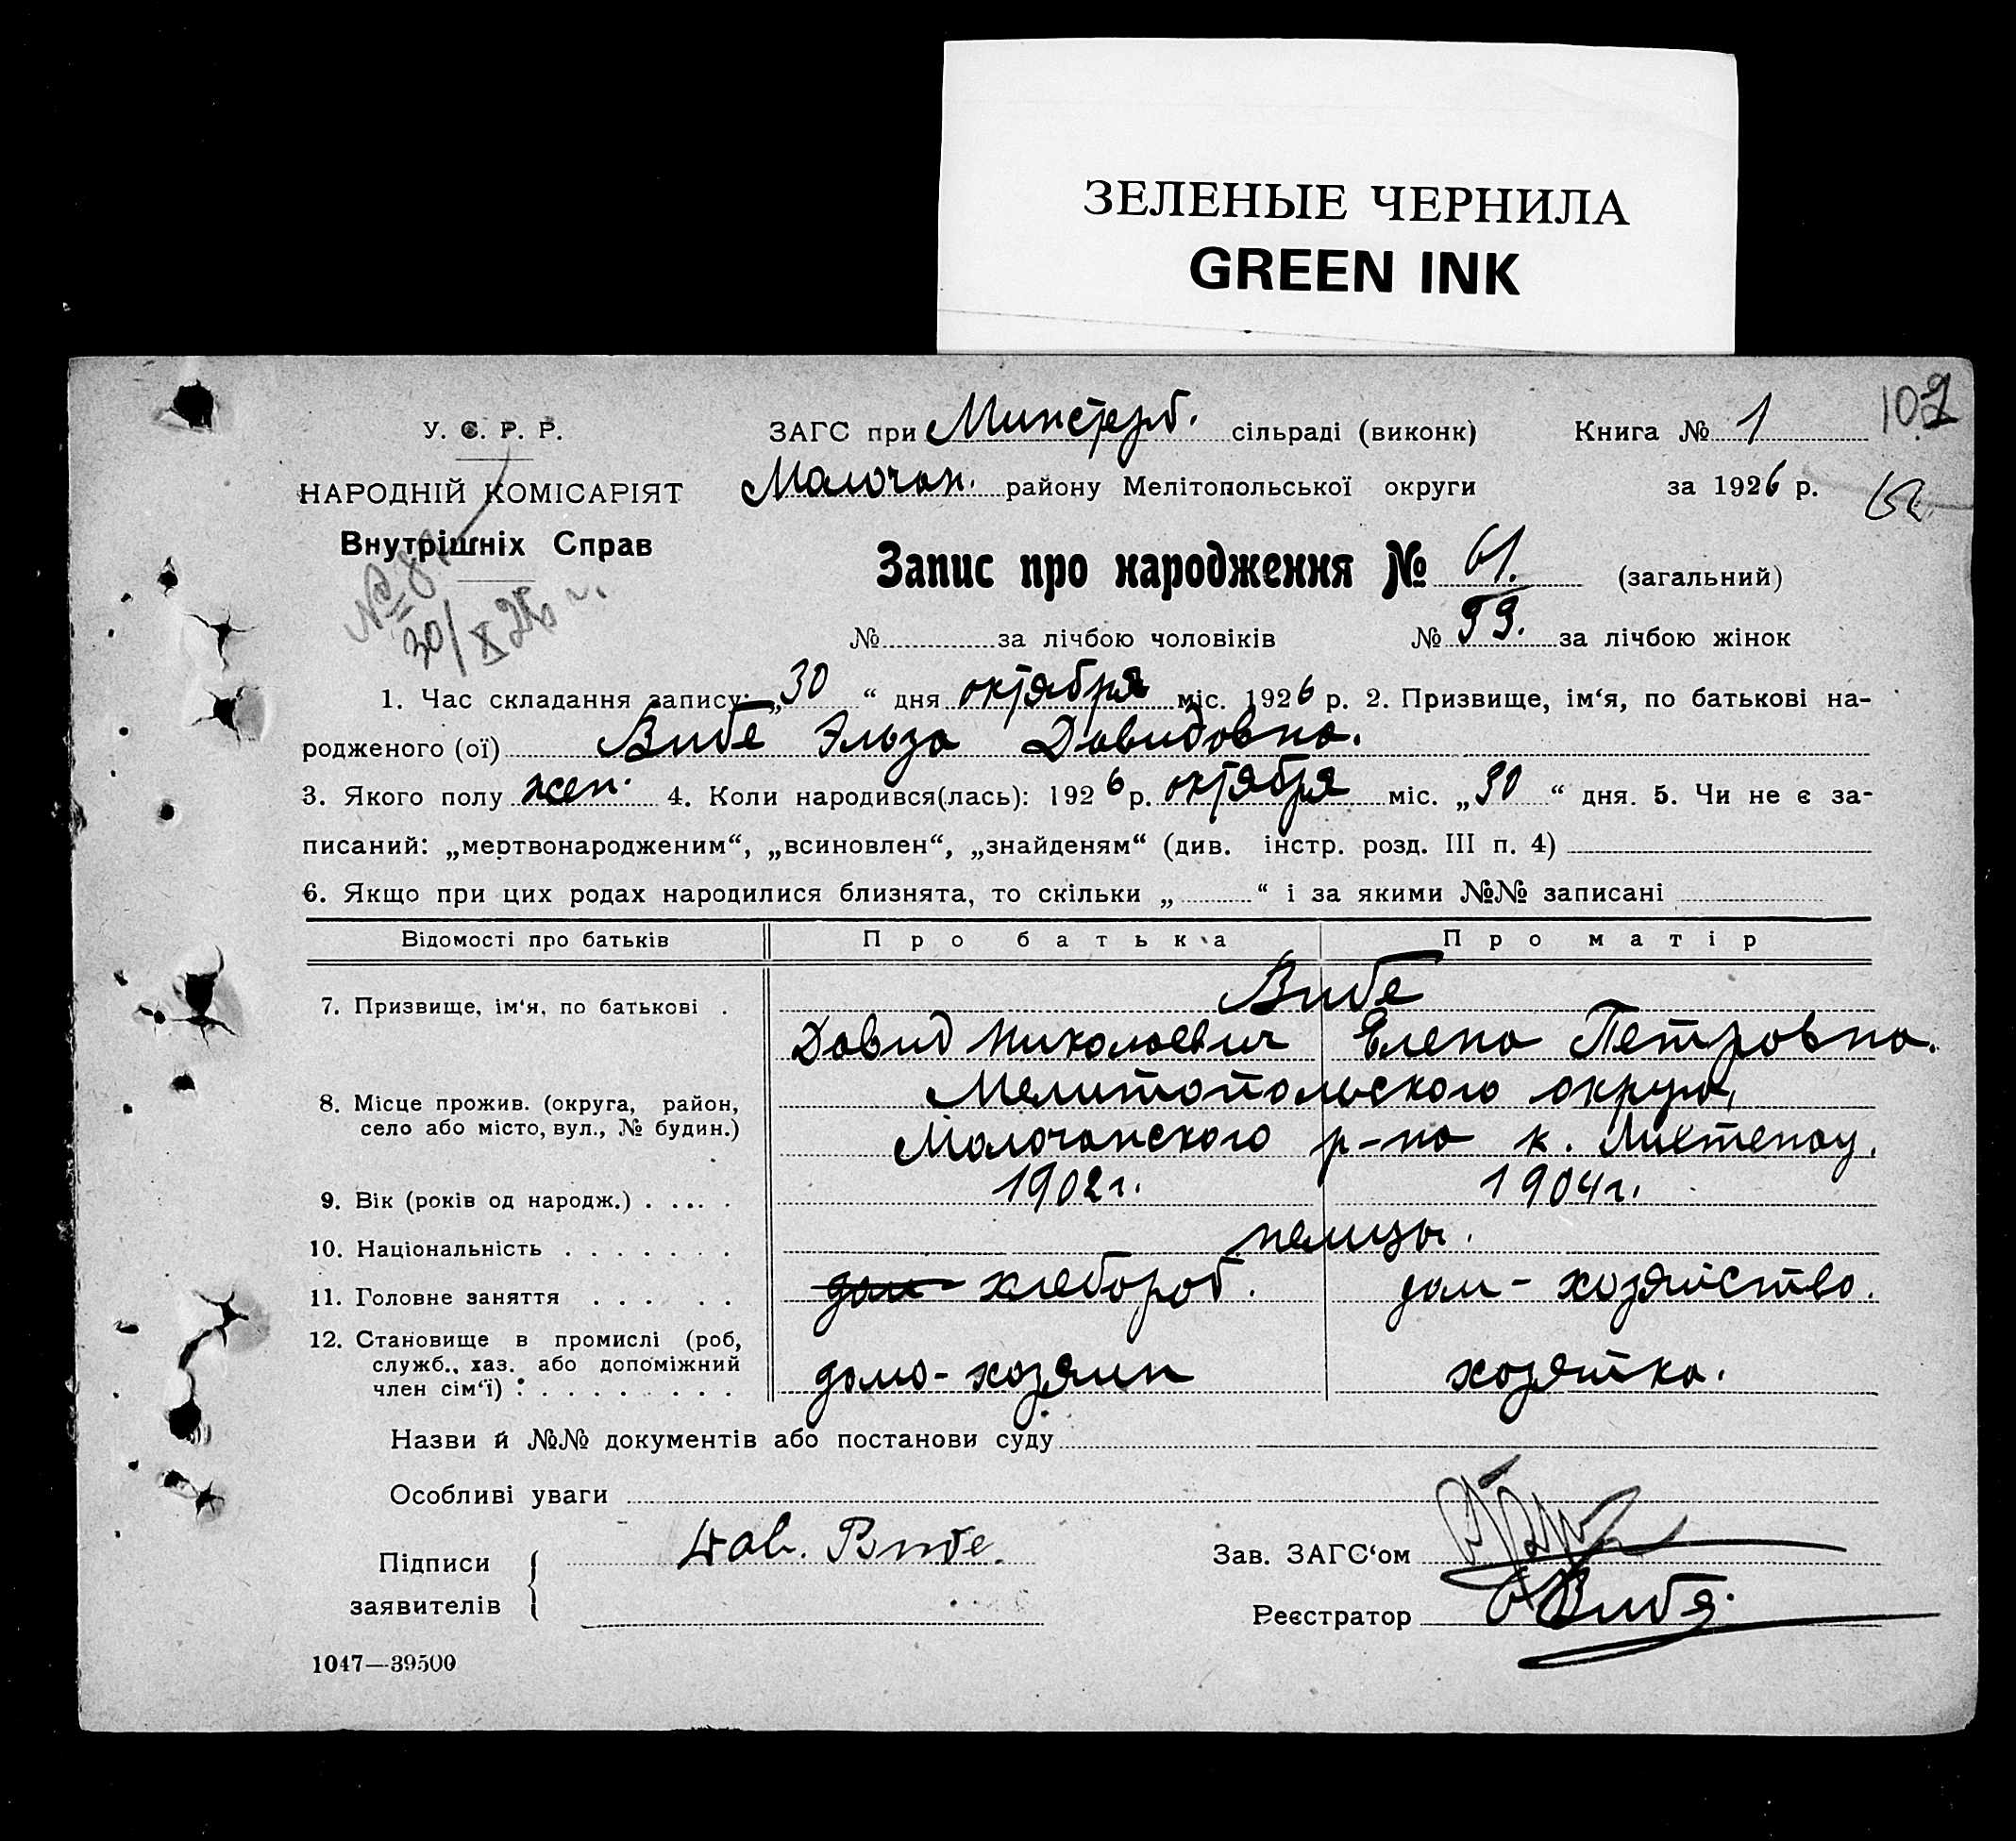 ЗЕЛЕНЫЕ ЧЕРНИЛА
GREEN INK
102
У. С. Р. Р.
НАРОДНІЙ КОМІСАРІЯТ
Внутрішніх Справ
30/X 26
ЗАГС при Минстерб. сільраді (виконк) Книга № 1
Молочан. району Мелітопольської округи за 1926 р.
Запис про народження № 61. (загальний)
№ за лічбою чоловіків № за лічбою жінок
1. Час складання запису: „30“ дня октября міс. 1926 р. 2. Призвище, ім‘я, по батькові на-
родженого (ої) Вибе Эльза Давидовна.
3. Якого полу жен. 4. Коли народився(лась): 1926 р. октября міс. „30“ дня. 5. Чи не є за-
писаний: „мертвонародженим“, „всиновлен“, „знайденям“ (див. інстр. розд. III п. 4)
6. Якщо при цих родах народилися близнята, то скільки „ “ і за якими №№ записані
Відомості про батьків Про батька Про матір
7. Призвище, ім‘я, по батькові . Вибе
Давид Николаевич Елена Петровна.
8. Місце прожив. (округа, район, Мелитопольского округа,
село або місто, вул., № будин.) Молочанского р-на к. Лихтенау.
9. Вік (років од народж.) 1902 г. 1904 г.
10. Національність немцы.
11. Головне заняття дом- хлебороб. дом-хозяйство.
12. Становище в промислі (роб,
служб., хаз. або допоміжний
член сім‘ї) : домо-хозяин хозяйка.
Назви й №№ документів або постанови суду
Особливі уваги
Підписи заявителів Дав. Вибе.
Зав. ЗАГС‘ом
Реєстратор Вибе.
1047—39500